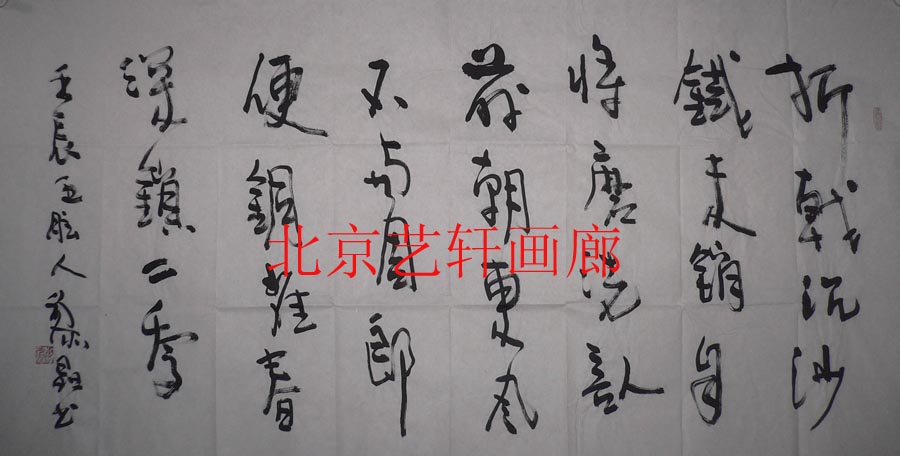 折戟沉沙
鐵未銷自
將磨洗認
前朝東风
不与周郎
便銅雀春
深鎖二喬
壬辰 人 书
北京艺轩画廊